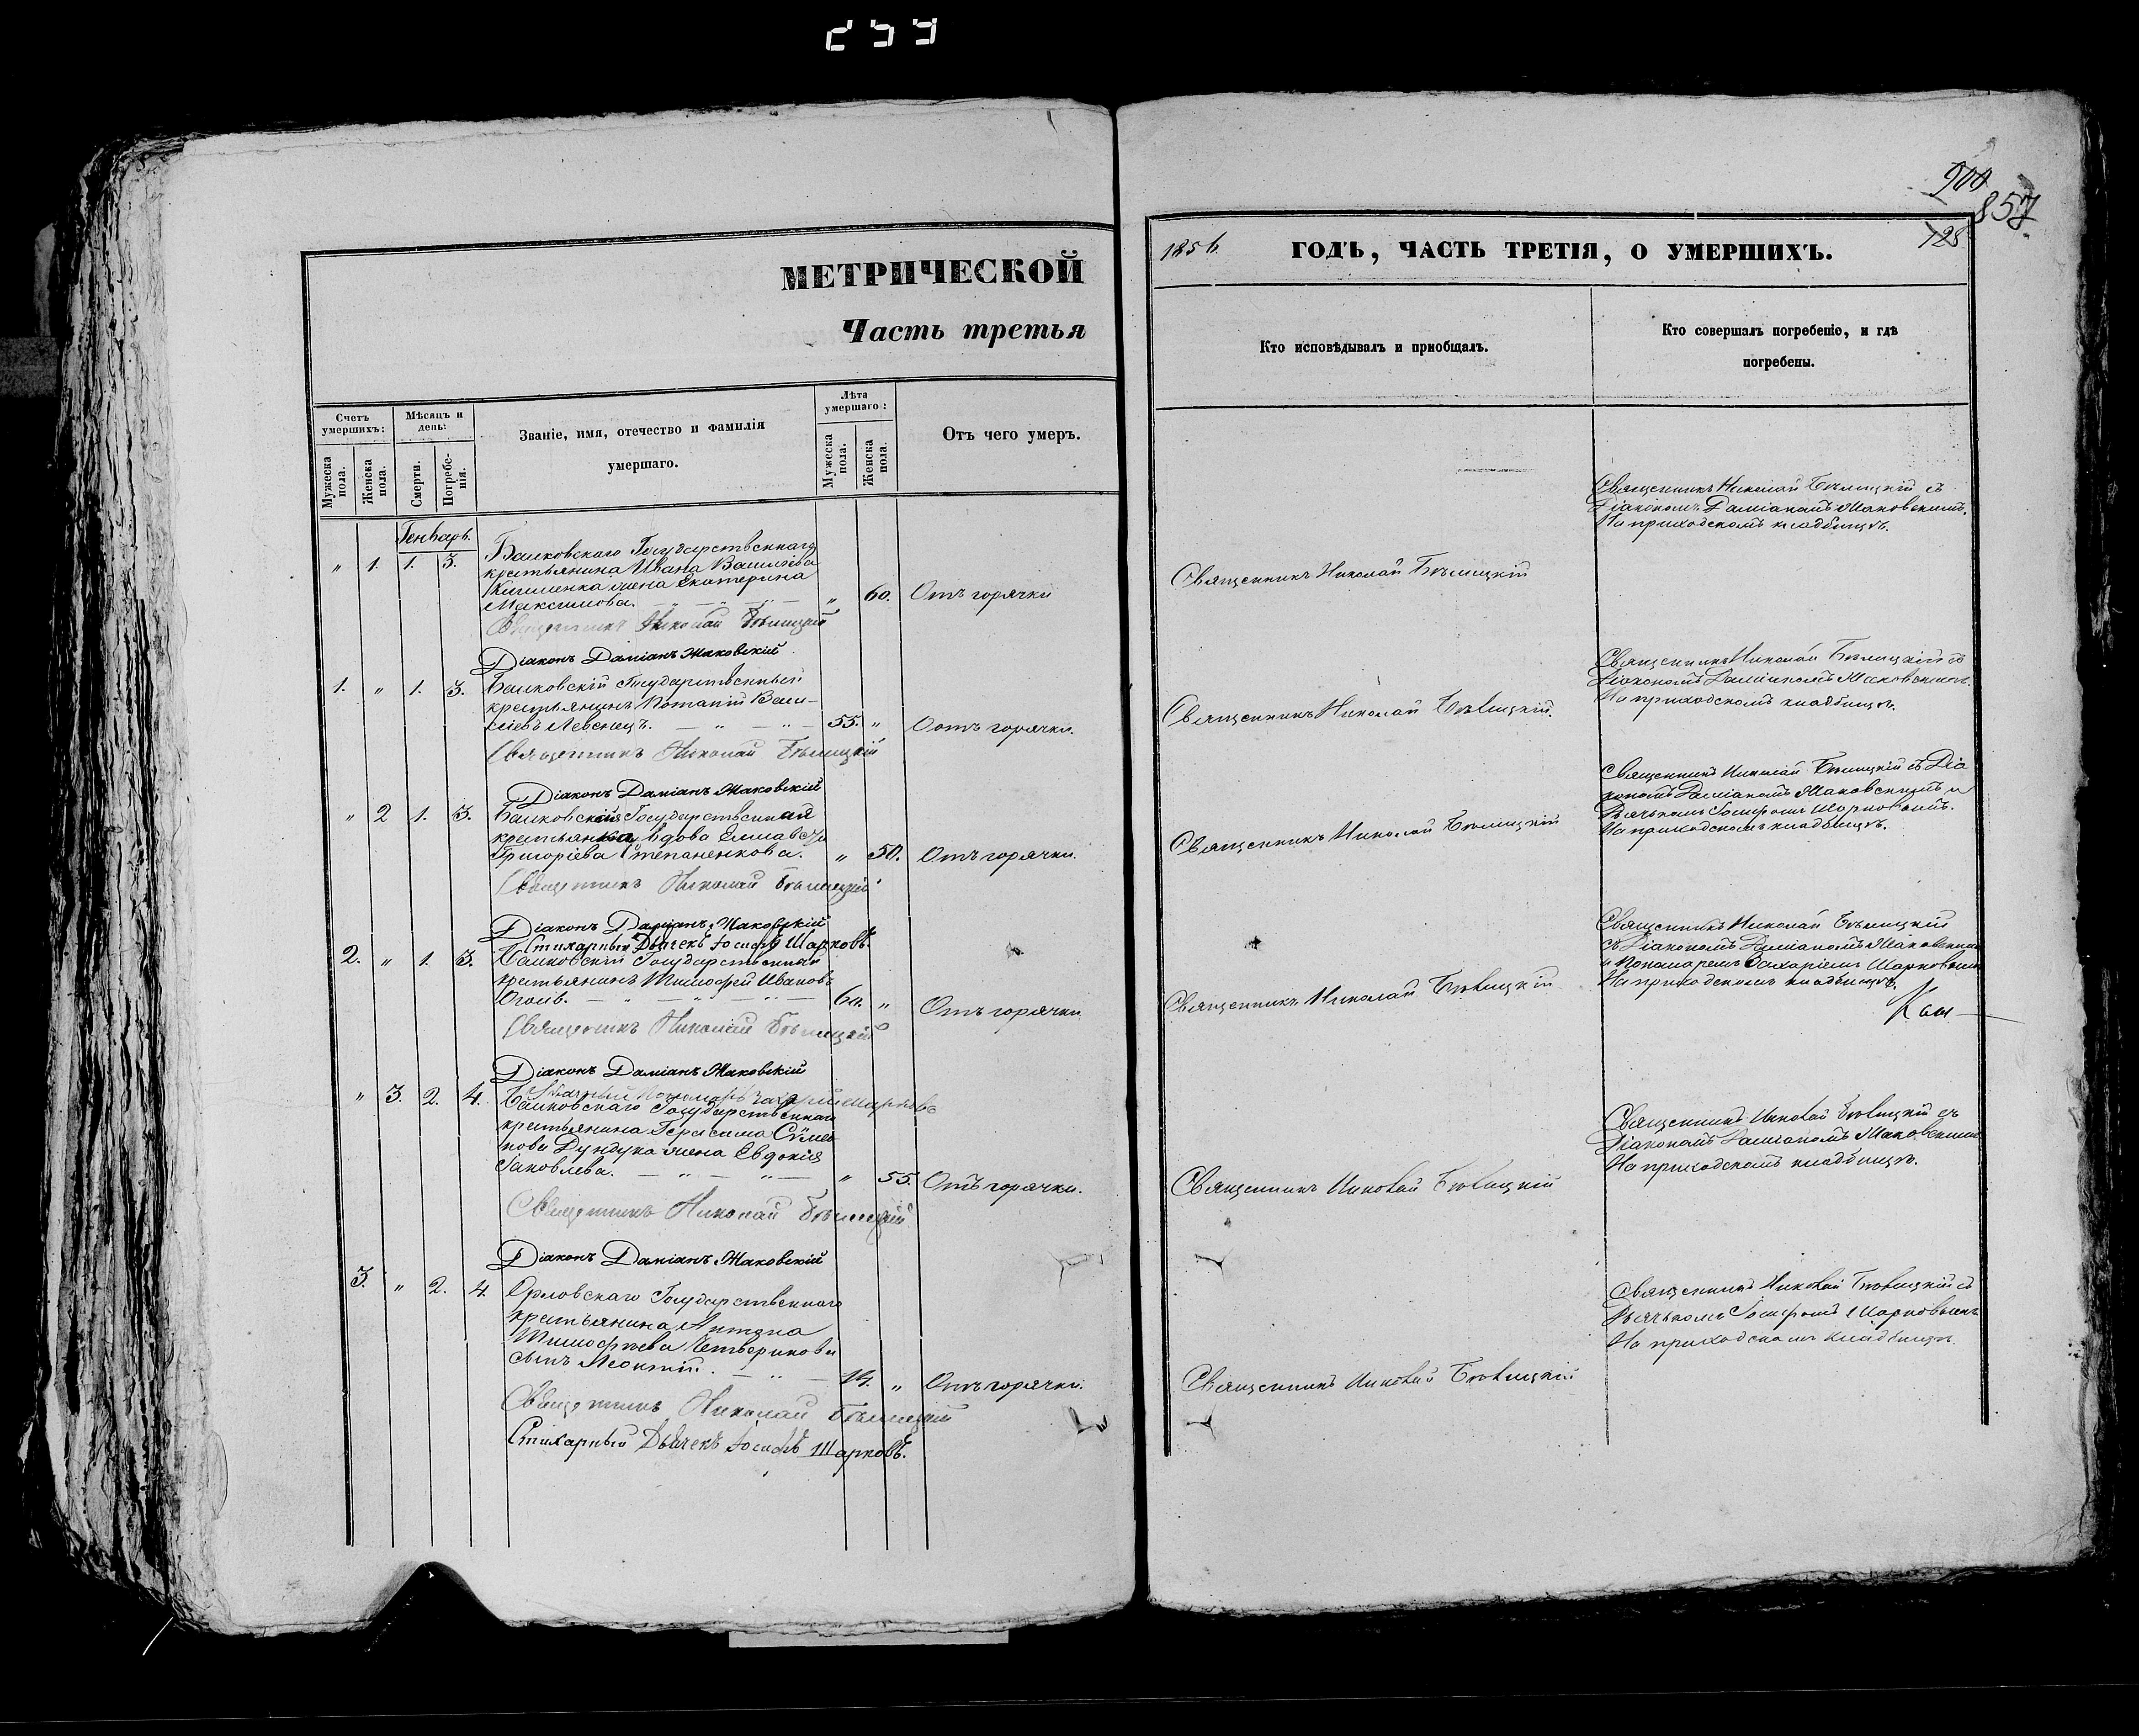 259
МЕТРИЧЕСКОЙ
Часть третья
Счетъ умершихъ:
Мѣсяцъ и день:
Званіе, имя, отечество и фамилія умершаго.
Лѣта умершаго:
Отъ чего умеръ.
Мужеска пола.
Женска пола.
Смерти.
Погребенія.
Мужеска пола.
Женска пола.
Генварь.
" 1. 1. 3. Балковскаго Государственнаго
крестьянина Ивана Василіева
жена Екатерина
Максимова. " 60. Отъ горячки
Священникъ Николай Бѣлицкій
Діаконъ Даміанъ Маковскій
1. " 1. 3. Балковскій Государственный
крестьянинъ Потапій Васи-
ліевъ Левенецъ. 55. " Оотъ горячки.
Священникъ Николай Бѣлицкій
Діаконъ Даміанъ Маковскій
" 2 1. 3. Балковская Государственная
крестьянка вдова Елисавета
Григоріева Степаненкова. " 50. Отъ горячки.
Священникъ Николай Бѣлицкій
Діаконъ Даміанъ Маковскій
Стихарный Дьячекъ Іосифъ Шарковъ.
2. " 1. 3. Балковскій Государственный
крестьянинъ Тимофей Ивановъ
60. " Отъ горячки
Священникъ Николай Бѣлицкій
Діаконъ Даміанъ Маковскій
" 3. 2. 4. Балковскаго Государственнаго
крестьянина Герасима
Дундука жена Евдокія
Іаковлева. " 55. Отъ горячки.
Священникъ Николай Бѣлицкій
Діаконъ Даміанъ Маковскій
3. " 2. 4. Орловскаго Государственнаго
крестьянина Антона
Тимофѣева Четверикова
сынъ Леонтій. " Отъ горячки.
Священникъ Николай Бѣлицкій
Стихарный Дьячекъ Іосифъ Шарковъ.
900
857
128
1856. ГОДЪ, ЧАСТЬ ТРЕТІЯ, О УМЕРШИХЪ.
Кто исповѣдывалъ и пріобщалъ.
Кто совершалъ погребеніе, и гдѣ
погребены.
Священникъ Николай Бѣлицкій съ
Діакономъ Даміаномъ Маковскимъ.
На приходскомъ кладбищѣ.
Священникъ Николай Бѣлицкій
Священникъ Николай Бѣлицкій съ
Діакономъ Даміаномъ Маковскимъ.
На приходскомъ кладбищѣ.
Священникъ Николай Бѣлицкій.
Священникъ Николай Бѣлицкій съ Діа
кономъ Даміаномъ Маковскимъ и
Дьячкомъ Іосифомъ Шарковымъ.
На приходскомъ кладбищѣ.
Священникъ Николай Бѣлицкій
Священникъ Николай Бѣлицкій
съ Діакономъ Даміаномъ Маковскимъ
и Пономаремъ Захаріемъ Шарковымъ
На приходскомъ кладбищѣ.
Священникъ Николай Бѣлицкій
Священникъ Николай Бѣлицкій съ
Діакономъ Даміаномъ Маковскимъ
На приходскомъ кладбищѣ.
Священникъ Николай Бѣлицкій
Священникъ Николай Бѣлицкій съ
Дьячкомъ Іосифомъ Шарковымъ
На приходскомъ кладбищѣ.
Священникъ Николай Бѣлицкій